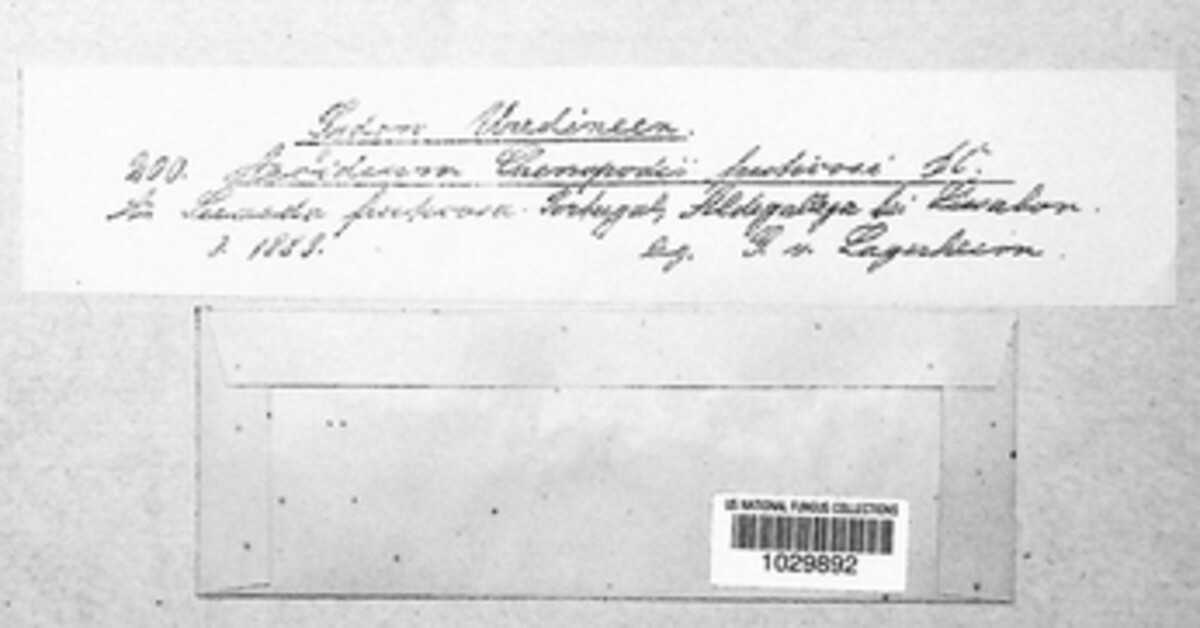 Sydow Uredineen.
200. Aecidium Chenopodii fruticosi DC.
An Suaeda fruticosa. Portugal, Aldegallega bei Lissabon.
3. 1883. leg. G. v. Lagerheim.
US NATIONAL FUNGUS COLLECTIONS
1029892